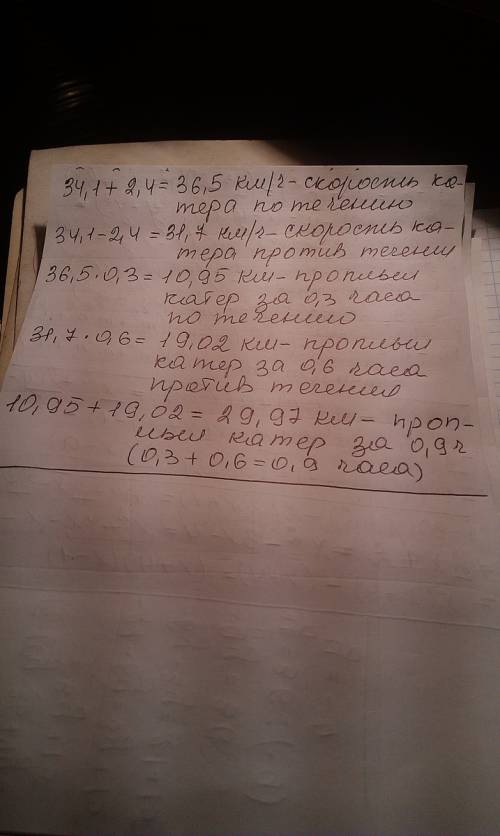 34,1+2,4=36,5 км/ч-скорость ка-
тера по течению
34,1-2,4=31,7 км/ч-скорость ка-
тера против течени
36,5·0,3=10,95 км-проплыл
катер за 0,3 часа
по течению
31,7·0,6=19,02 км-проплыл
катер за 0,6 часа
против течения
10,95+19,02=29,97 км-проп-
лыл катер за 0,9ч
(0,3+0,6=0,9 часа)